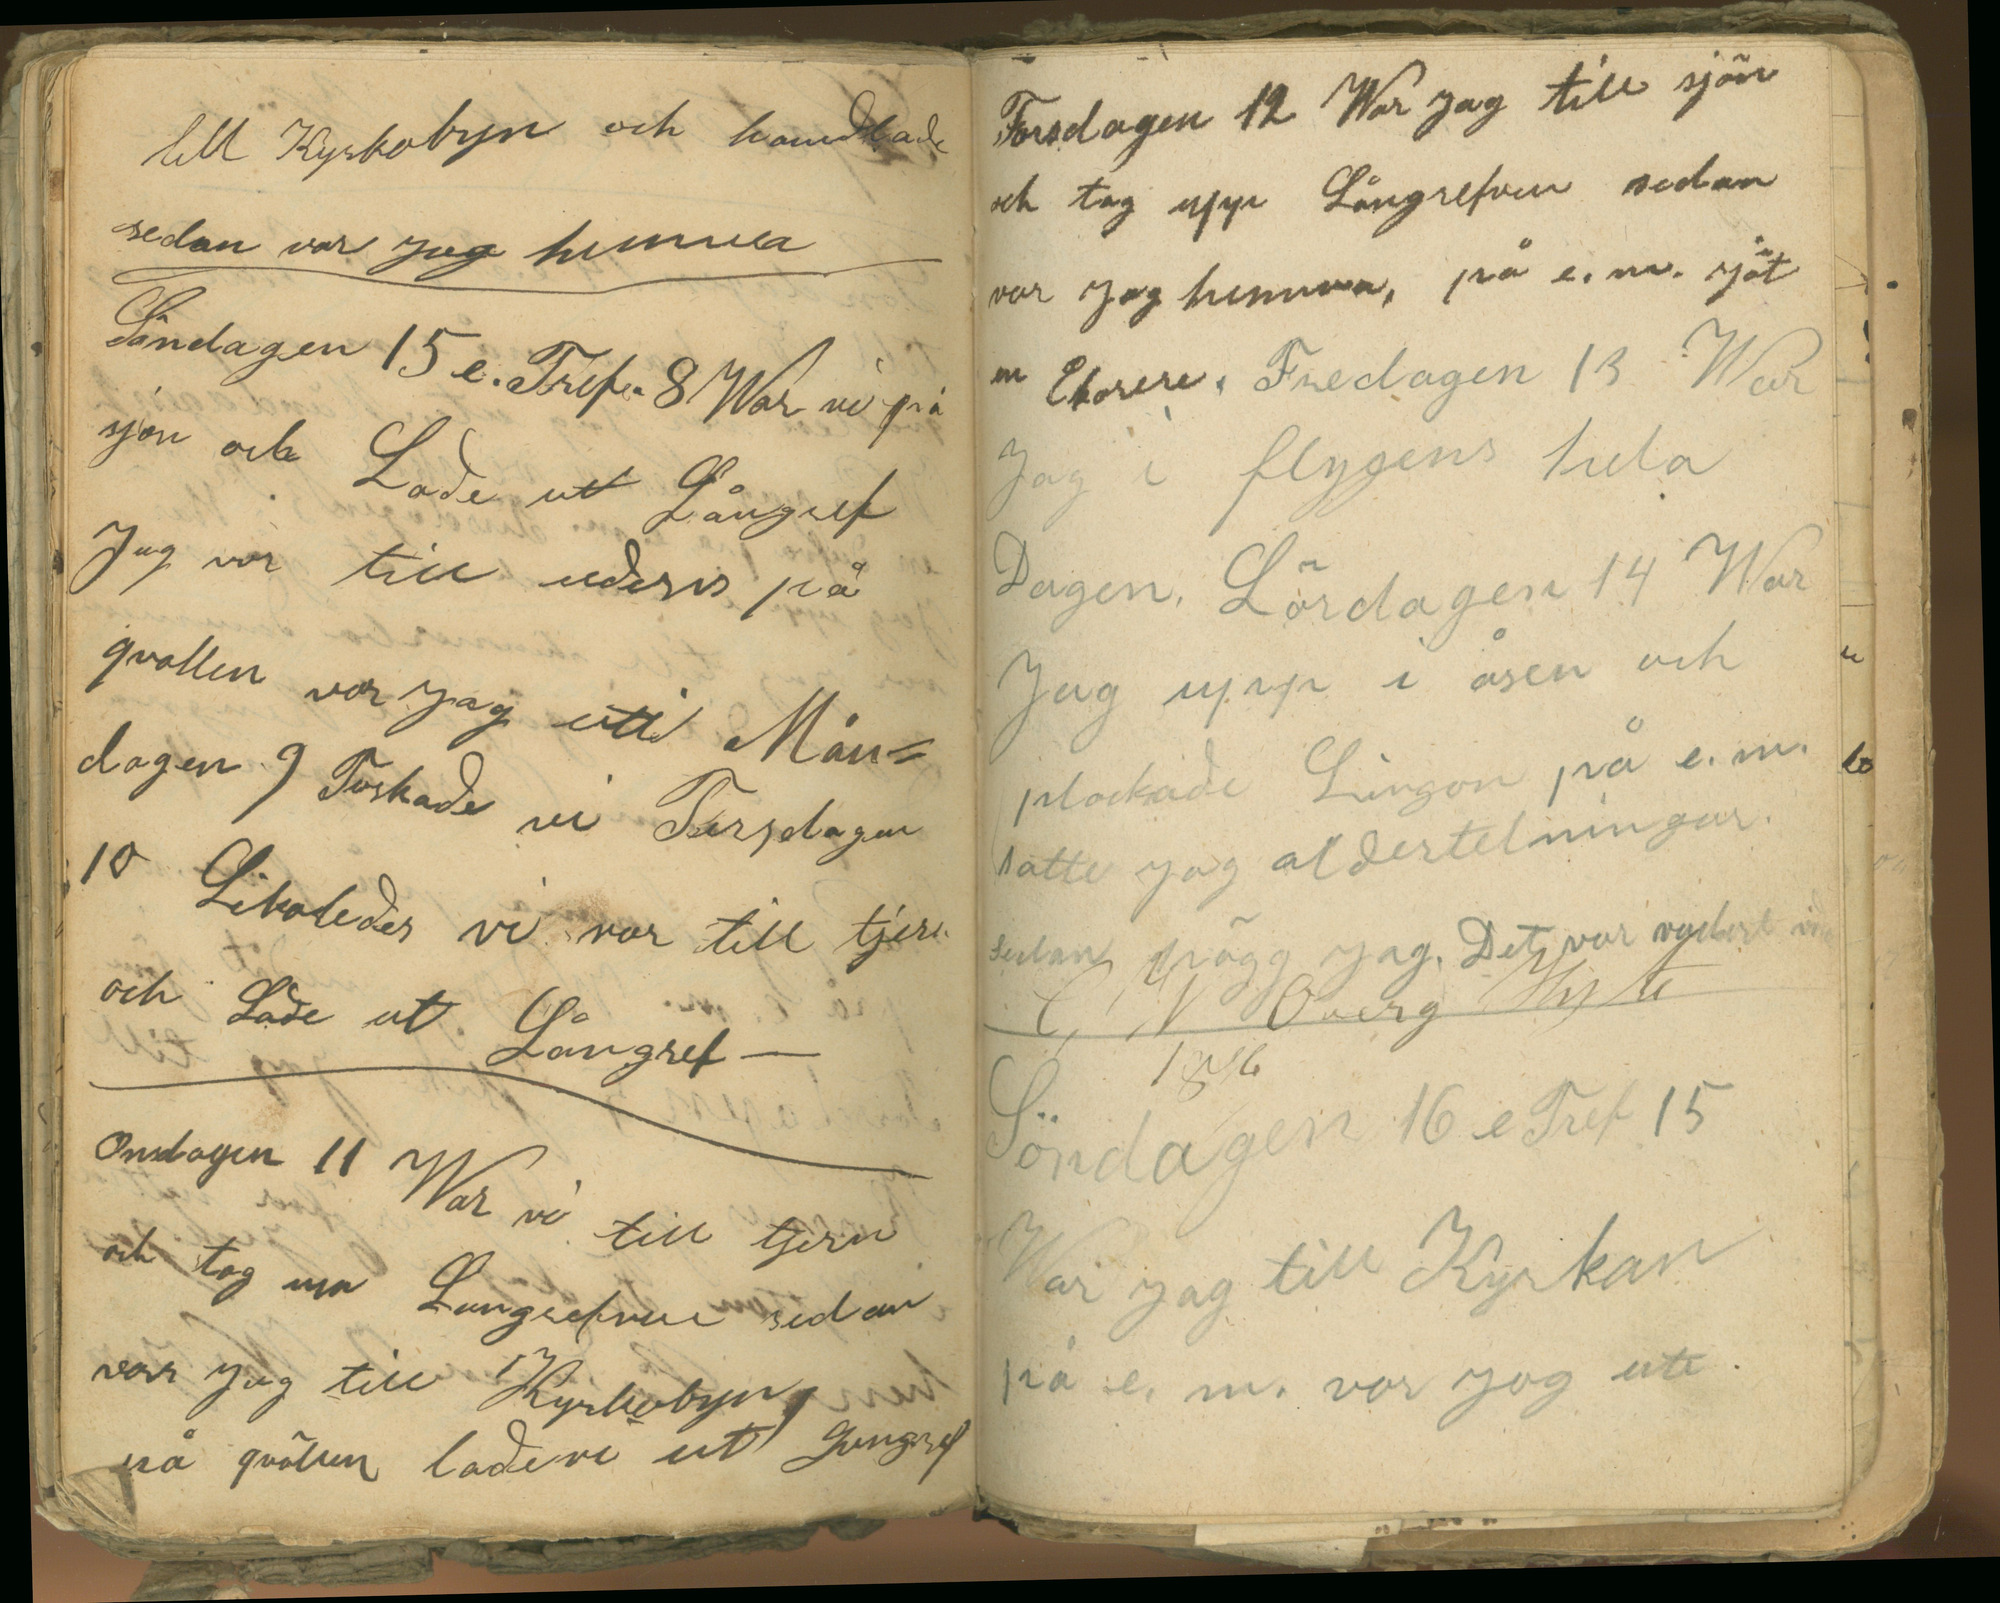 till Kyrkobyn och handlade
sedan var jag hemma
Söndagen 15 e. Tref. 8 War vi på
sjön och Lade ut Långref
Jag var till uders på
qvallen var jag uti Mån=
dagen 9 Toskade vi Tirsdagen
10 Likaledes vi var till tjern
och Lade ut Långref —
Onsdagen 11 War vi till tjern
och tog upp Langrefven sedan
varr jag till Kyrkobyn,
på qvällen lade vi ut Langref
Torsdagen 12 War jag till sjön
och tog upp Långrefven sedan
var jag hemma, på e. m. sjöt
en Ekorere. Fredagen 13 War
Jag i flygens hela
Dagen. Lördagen 14 War
Jag upp i åsen och
plockade Lingon på e. m.
satte jag aldertelningar.
sedan högg jag. Det var vackert
C, N Oberg
18
Söndagen 16 e Tref 15
War jag till Kyrkan
på e. m. var jag ute.